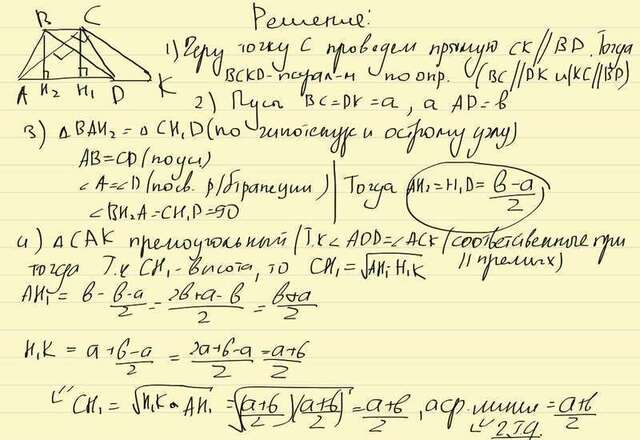 Решение:
B C
A H₂ H₁ D K
1) Через точку C проведем прямую CK//BD. Тогда
BCKD-парал-м по опр. (BC//DK и KC//BD)
2) Пусть BC=DK=a, а AD=в
3) △BAH₂=△CH₁D (по гипотенузе и острому углу)
AB=CD (по усл)
∠A=∠D (по св. р/б трапеции) Тогда AH₂=H₁D= (в-a)/2
∠BH₂A=CH₁D=90
4) △CAK прямоугольный (т.к ∠AOD=∠ACK (соответственные при
// прямых)
тогда т.к CH₁-высота, то CH₁=√(AH₁·H₁K)
AH₁ = в - (в-a)/2 = (2в+a-в)/2 = (в+a)/2
H₁K = a + (в-a)/2 = (2a+в-a)/2 = (a+в)/2
CH₁ = √(H₁K·AH₁) = √((a+в)/2)((a+в)/2) = (a+в)/2, а ср. линия = (a+в)/2
ч.т.д.